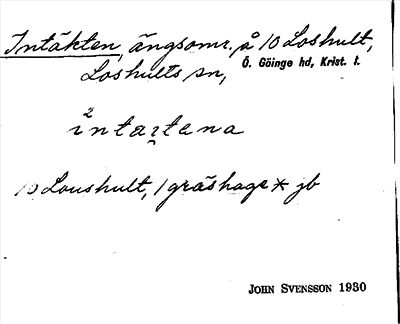 Intäkten, ängsomr. å 10 Loshult,
Loshults sn, Ö. Göinge hd, Krist. l.
2
intaɪ̯tena
10 Loushult, 1 gräshage * jb
JOHN SVENSSON 1930